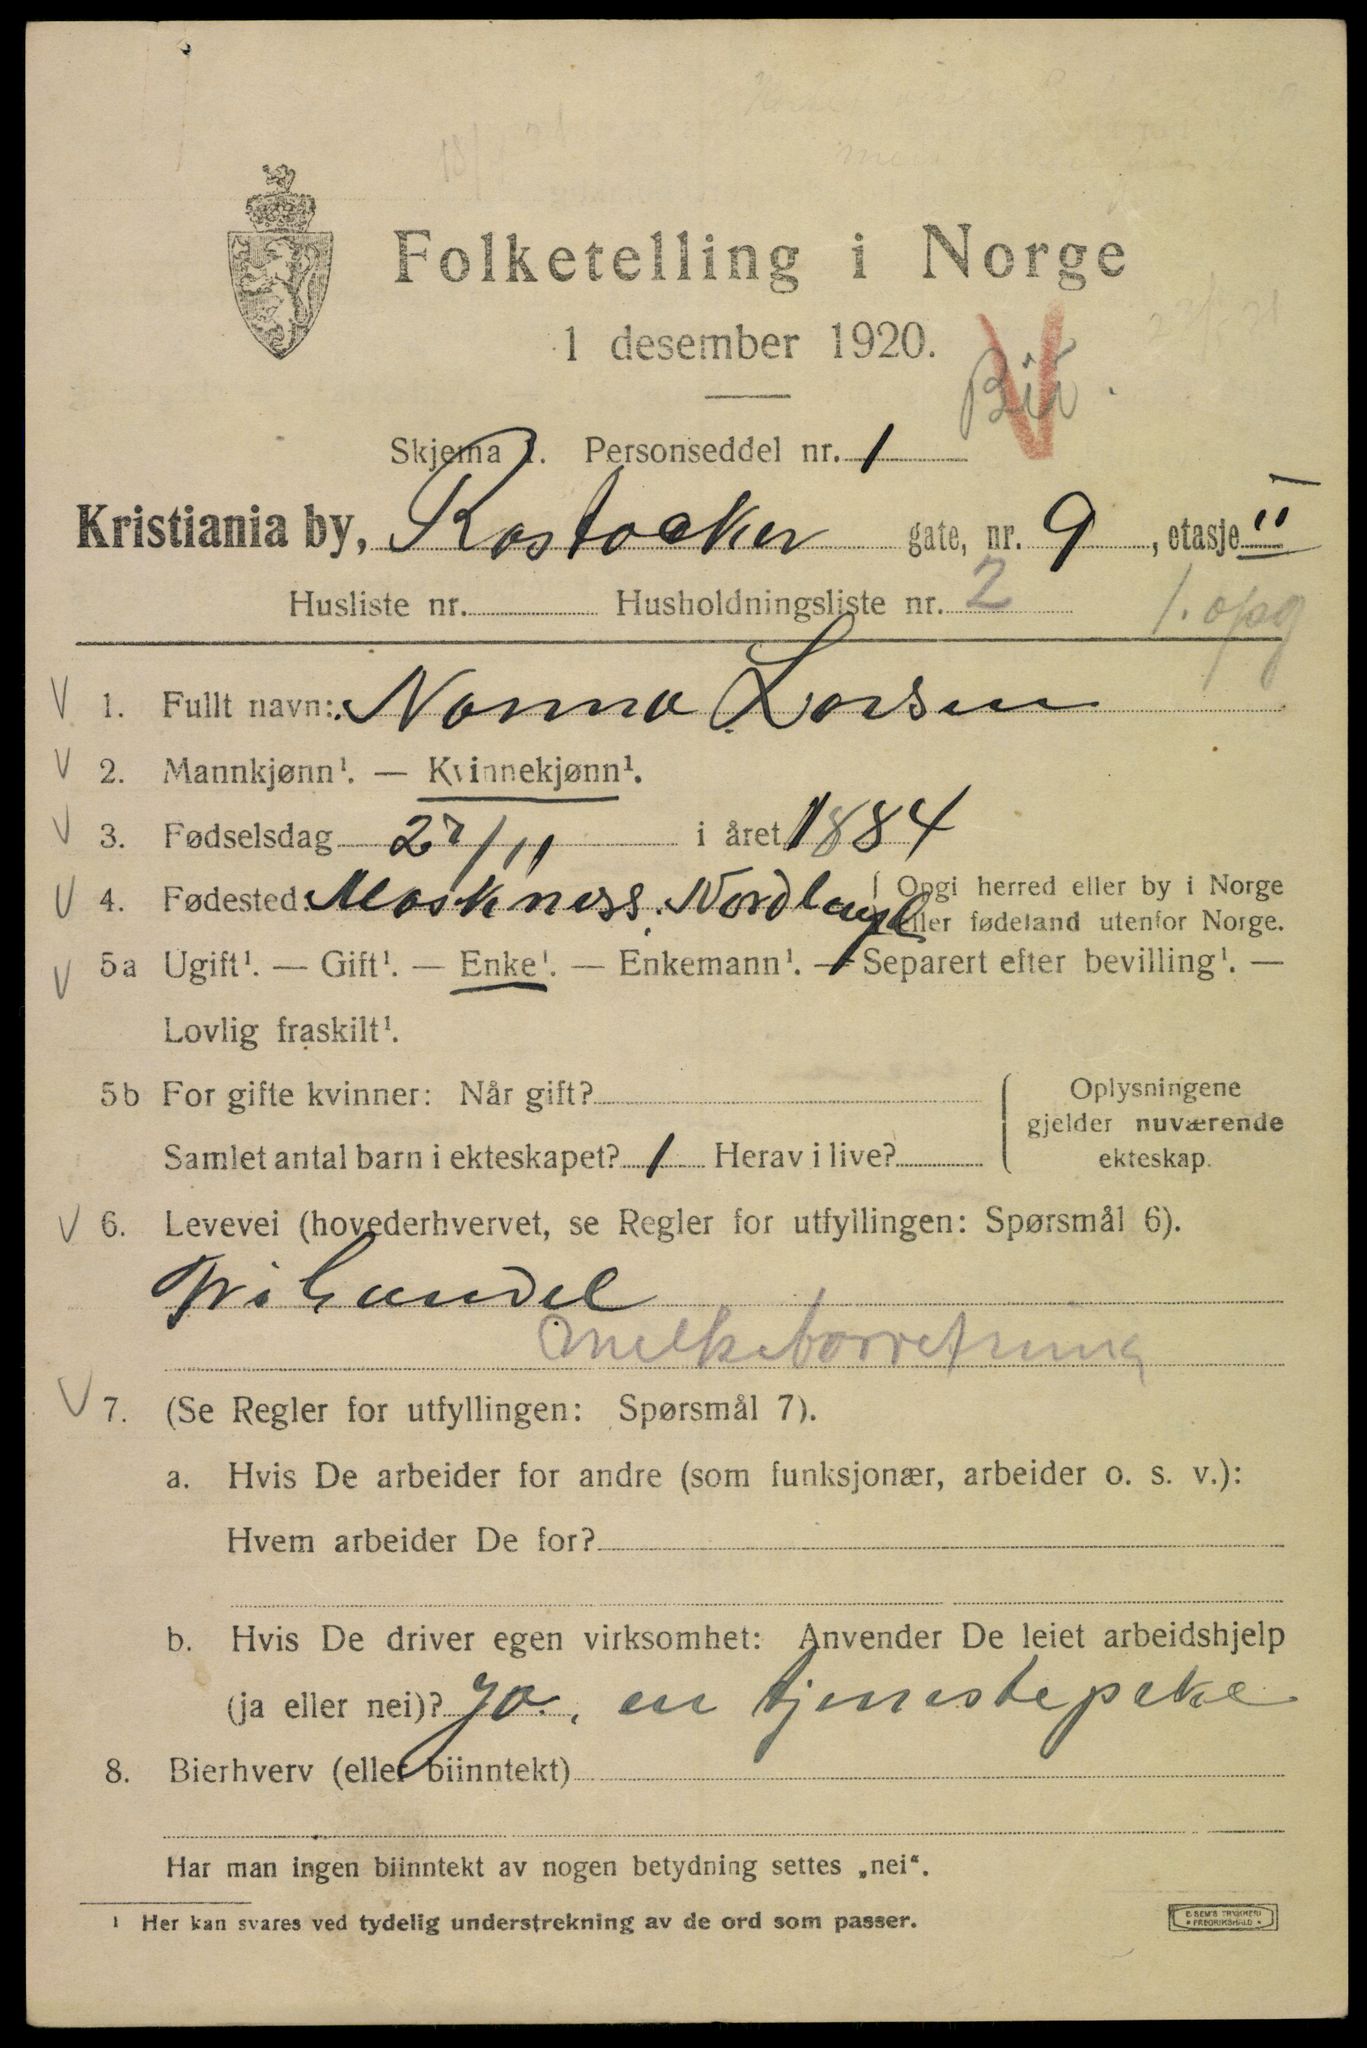 Folketelling i Norge
1 desember 1920.
Skjema 1. Personseddel nr. 1
Kristiania by, Rostocker gate, nr. 9, etasje II
Husliste nr. Husholdningsliste nr. 2
1. opg
1. Fullt navn: Nanna Larsen
2. Mannkjønn¹. — Kvinnekjønn¹.
3. Fødselsdag 27/11 i året 1884
4. Fødested: Moskness. Nordland { Opgi herred eller by i Norge
eller fødeland utenfor Norge.
5a Ugift¹. — Gift¹. — Enke¹. — Enkemann¹. — Separert efter bevilling¹. —
Lovlig fraskilt¹.
5b For gifte kvinner: Når gift?
Samlet antal barn i ekteskapet? 1 Herav i live?
Oplysningene
gjelder nuværende
ekteskap.
6. Levevei (hovederhvervet, se Regler for utfyllingen: Spørsmål 6).
Frihandel
melkeforretning
7. (Se Regler for utfyllingen: Spørsmål 7).
a. Hvis De arbeider for andre (som funksjonær, arbeider o. s. v.):
Hvem arbeider De for?
b. Hvis De driver egen virksomhet: Anvender De leiet arbeidshjelp
(ja eller nei)? Ja, en tjenestepike
8. Bierhverv (eller biinntekt)
Har man ingen biinntekt av nogen betydning settes „nei“.
¹ Her kan svares ved tydelig understrekning av de ord som passer.
E SEM'S TRYKKERI
FREDRIKSHALD